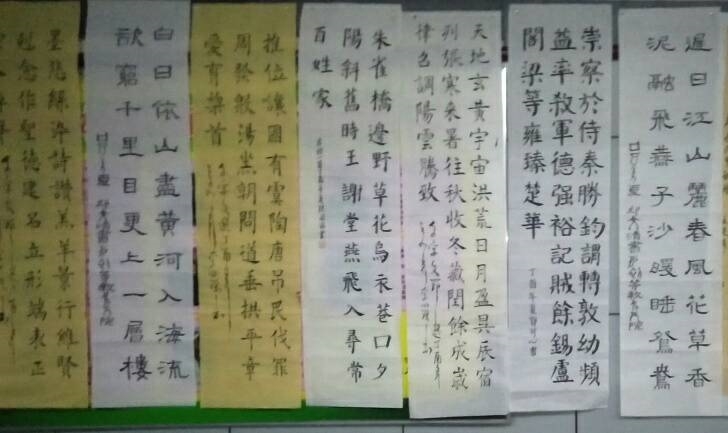 遲日江山麗春風花草香
泥融飛燕子沙暖睡鴛鴦
崇察於侍秦勝鈞謂轉敦幼頻
益率救軍德强裕記賊餘錫盧
閣梁等雍臻楚華
天地玄黃宇宙洪荒日月盈昃辰宿
列張寒來暑往秋收冬藏閏餘成歲
律呂調陽雲騰致
朱雀橋邊野草花烏衣巷口夕
陽斜舊時王謝堂燕飛入尋常
百姓家
推位讓國有虞陶唐吊民伐罪
周發殷湯坐朝問道垂拱平章
愛育黎首
白日依山盡黃河入海流
欲窮千里目更上一層樓
墨悲絲染詩讚羔羊景行維賢
剋念作聖德建名立形端表正